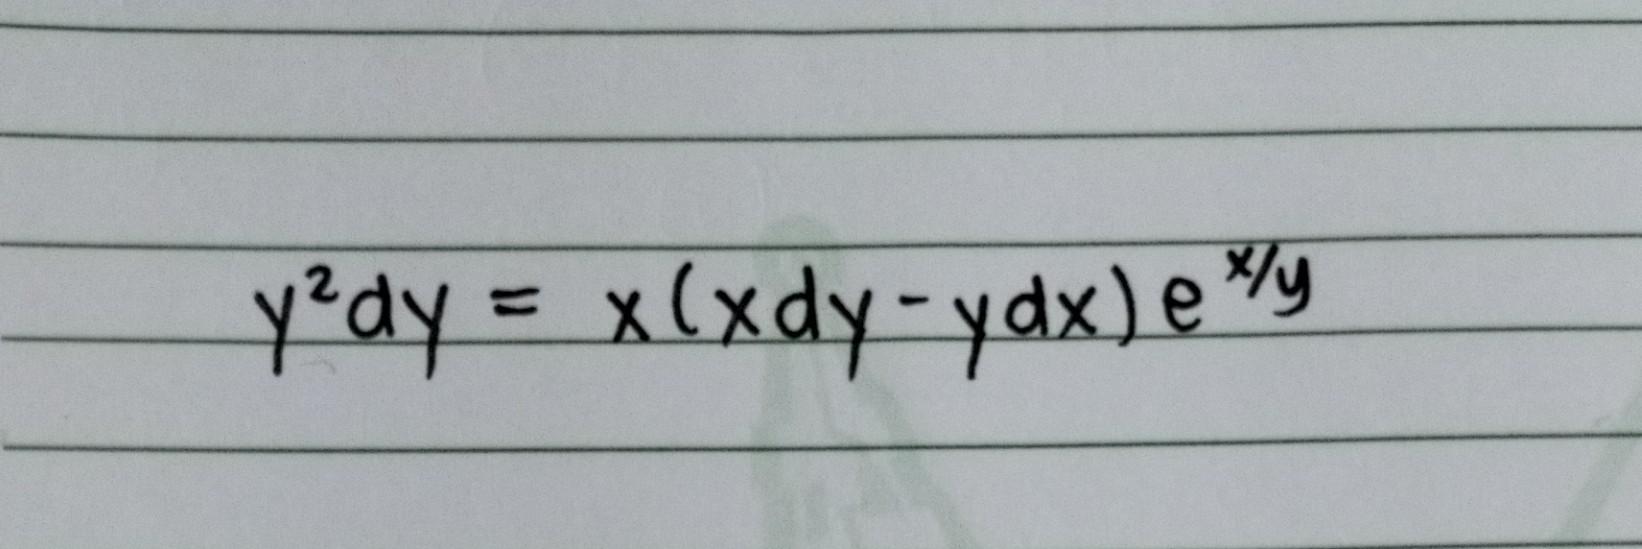 y²dy = x(xdy-ydx)e^x/y